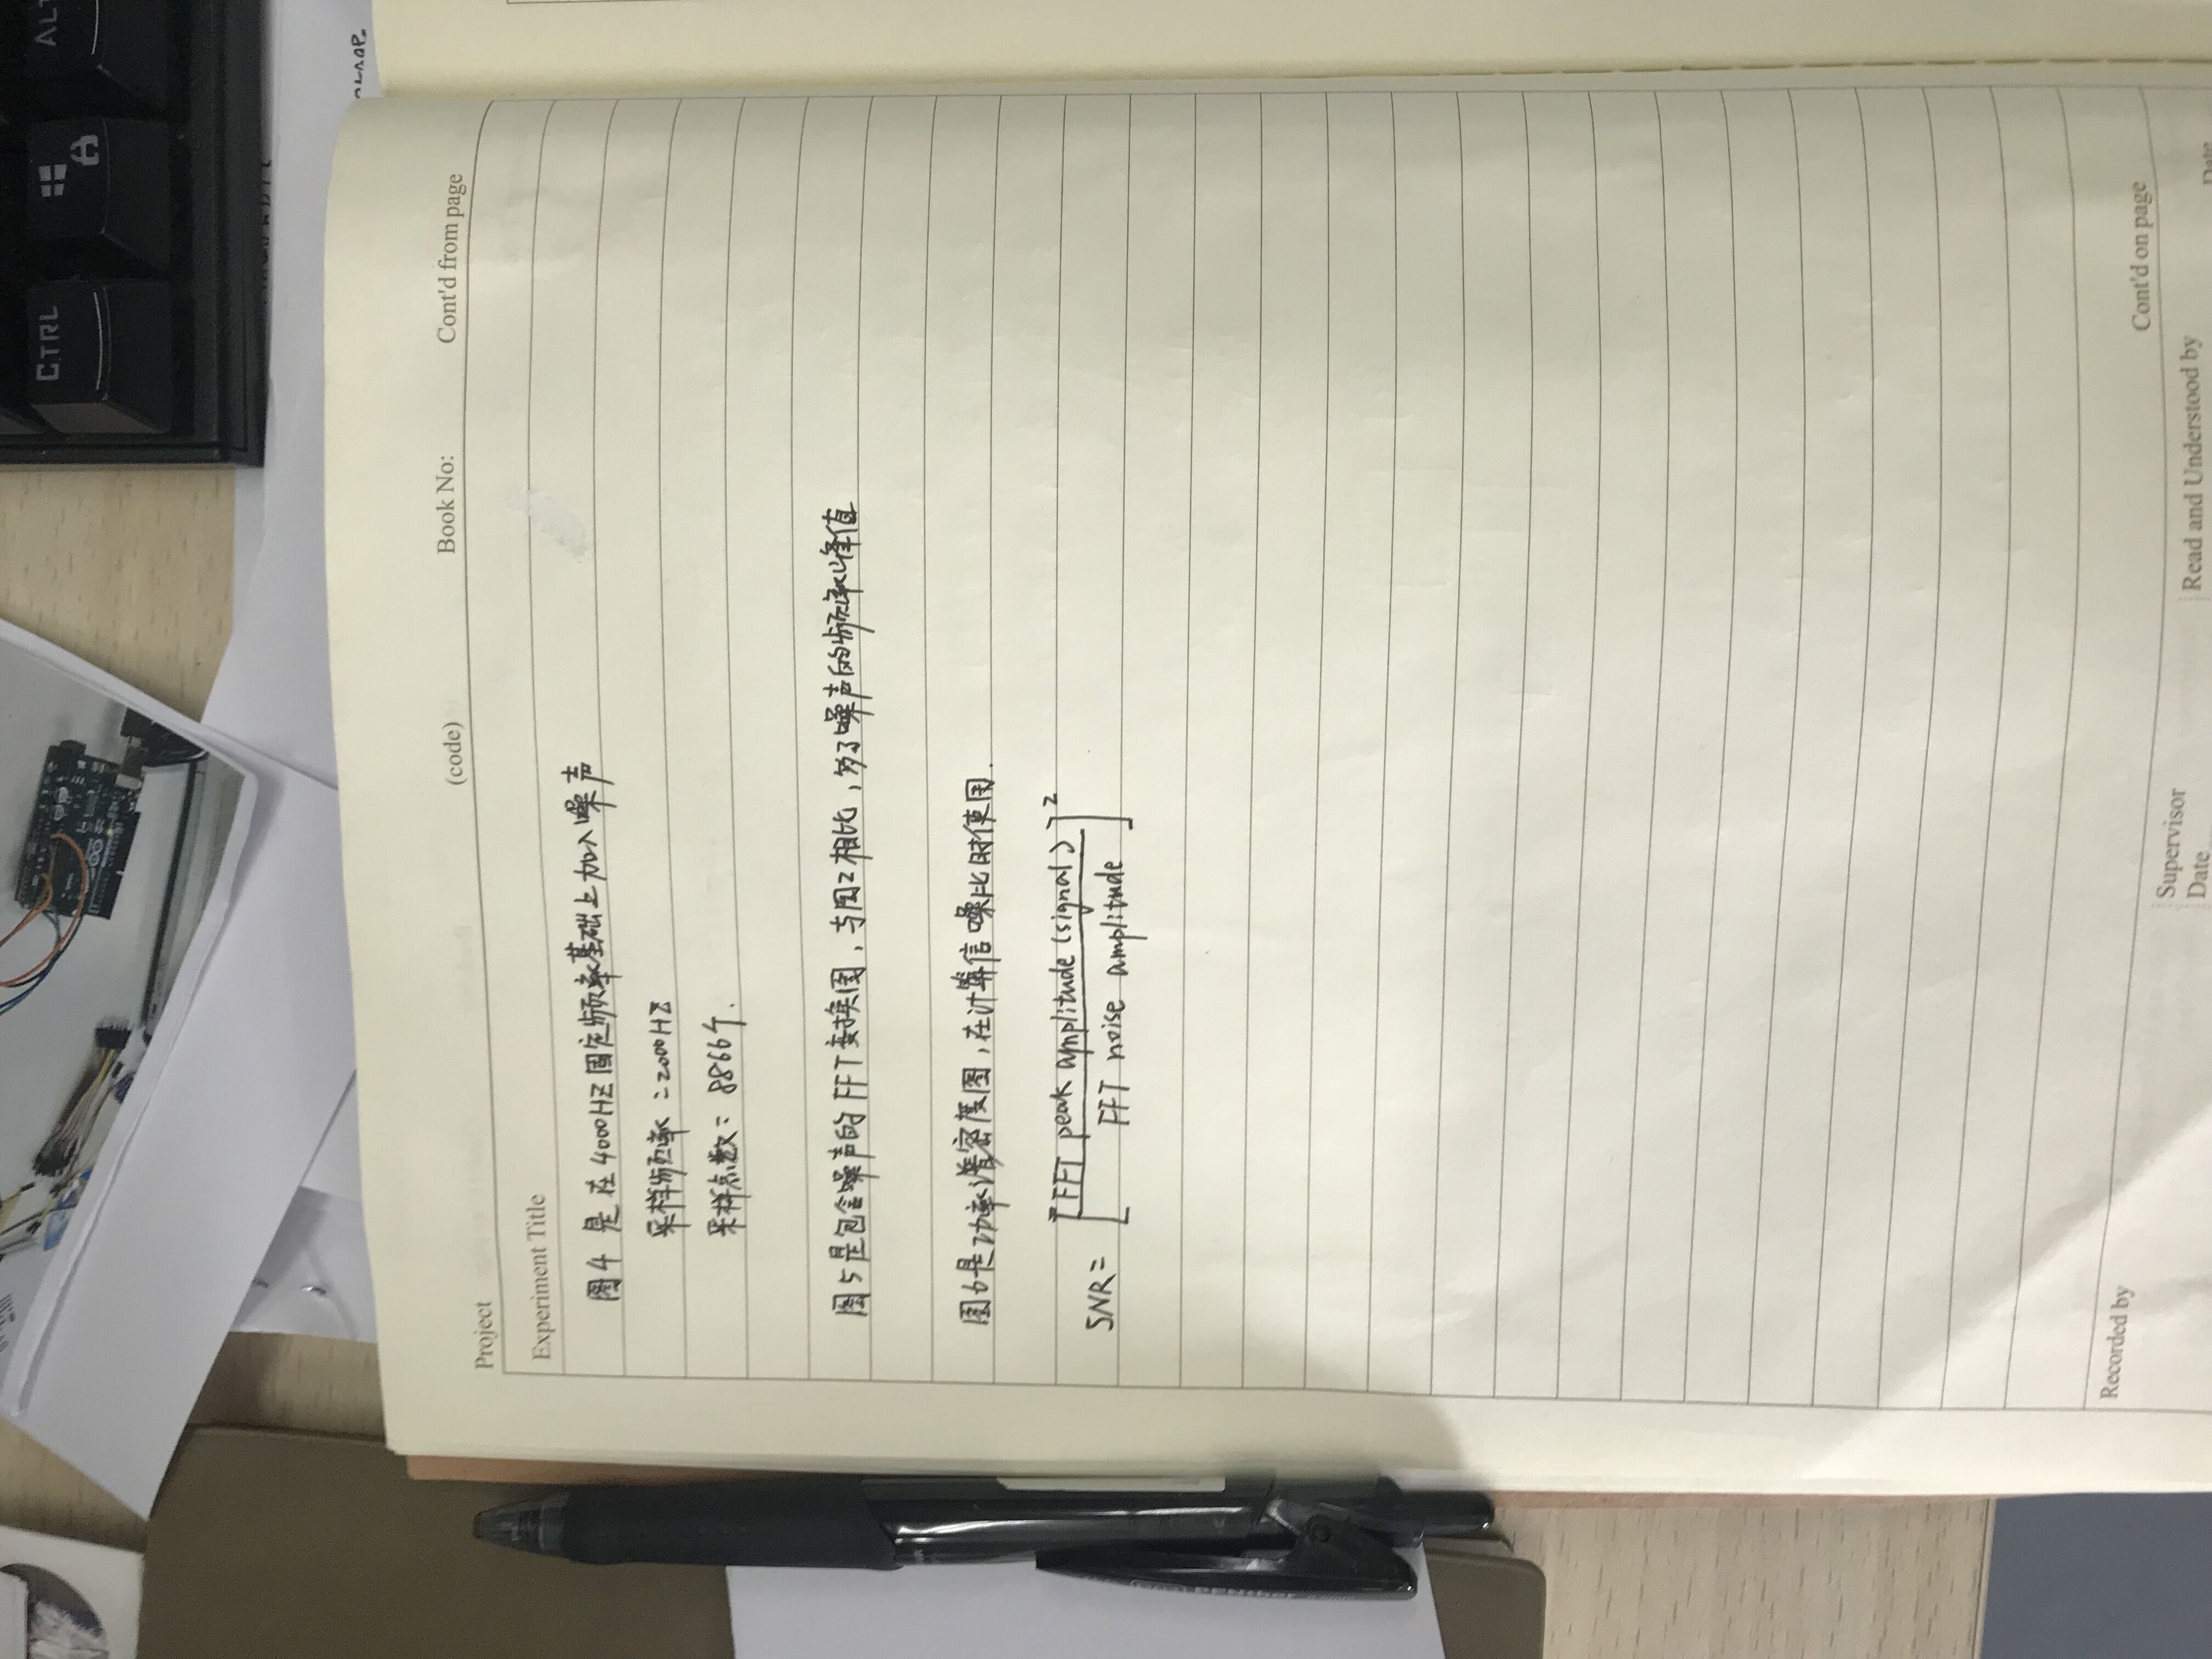 Project
(code)
Book No:
Cont'd from page
Experiment Title
图4 是在4000HZ固定频率基础上加入噪声
采样频率=2000HZ
采样点数=8866个.
图5是包含噪声的FFT变换图,与图2相比,多了噪声的频率峰值
图6是功率谱密度图,在计算信噪比时使用.
SNR= [FFT peak amplitude (signal)]²
FFT noise amplitude
Cont'd on page
Recorded by
Supervisor
Date
Read and Understood by
Date
CTRL
ALT